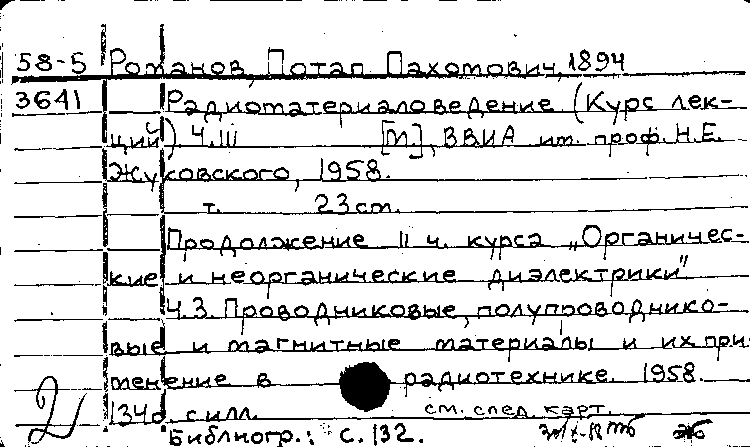 58-5 Романов, Потап Пахомович, 1894
3641 Радиоматериаловедение (Курс лек-
ций). Ч.III [М.], ВВИА им. проф. Н.Е.
Жуковского, 1958.
т. 23 cm.
Продолжение II ч. курса „Органичес-
кие и неорганические диэлектрики"
Ч.3. Проводниковые, полупроводнико-
вые и магнитные материалы и их при-
менение в радиотехнике. 1958.
134 с. с илл. см. след. карт.
2 Библиогр.: с. 132.